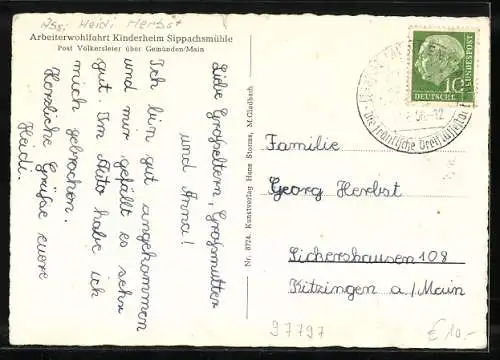 Abs. Heidi Herbst
Arbeiterwohlfahrt Kinderheim Sippachsmühle
Post Völkersleier über Gemünden/Main
Liebe Großeltern, Großmutter
und Anna!
Ich bin gut angekommen
und mir gefällt es sehr
gut. Im Auto habe ich
mich gebrochen.
Herzliche Grüße euere
Heidi.
Nr. 8724. Kunstverlag Hans Storms, M.Gladbach
DEUTSCHE
BUNDESPOST
10
56-12
Die fränkische Dreiflüssestadt
Familie
Georg Herbst
Sickershausen 108
Kitzingen a/Main
97797
€ 10.-